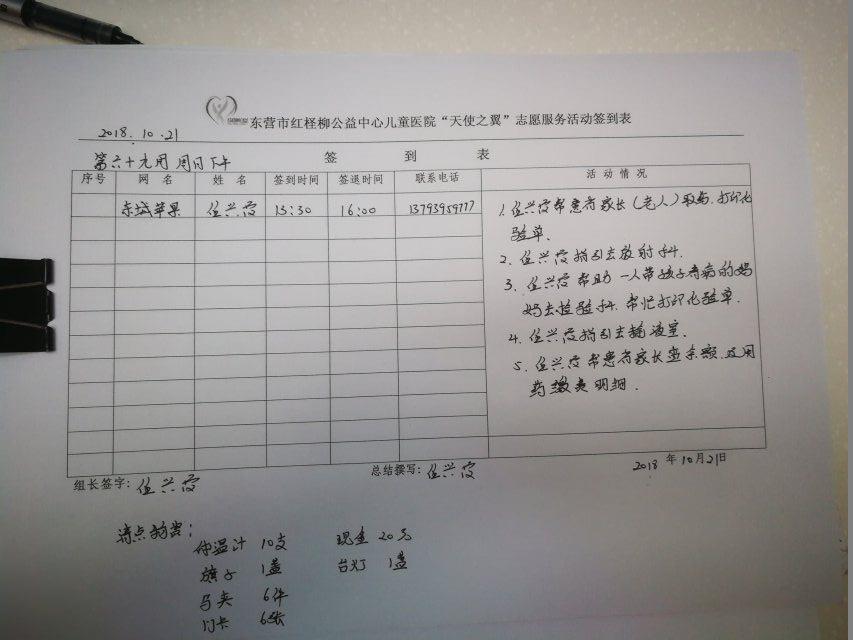 东营市红柽柳公益中心儿童医院“天使之翼”志愿服务活动签到表
2018.10.21
第六十九周 周日下午
签 到 表
序号 网 名 姓 名 签到时间 签退时间 联系电话 活 动 情 况
东城苹果 伍兴霞 13:30 16:00 13793959777
1. 伍兴霞帮患者家长(老人)取药.打印化
验单.
2. 伍兴霞指引去放射科.
3. 伍兴霞帮助一人带孩子看病的妈
妈去检验科.帮忙打印化验单.
4. 伍兴霞指引去输液室.
5. 伍兴霞帮患者家长查余额.及用
药缴费明细.
组长签字: 伍兴霞
总结撰写: 伍兴霞
2018 年 10月21日
清点物资:
体温计 10支 现金 20元
旗子 1盖 台灯 1盏
马夹 6件
门卡 6张